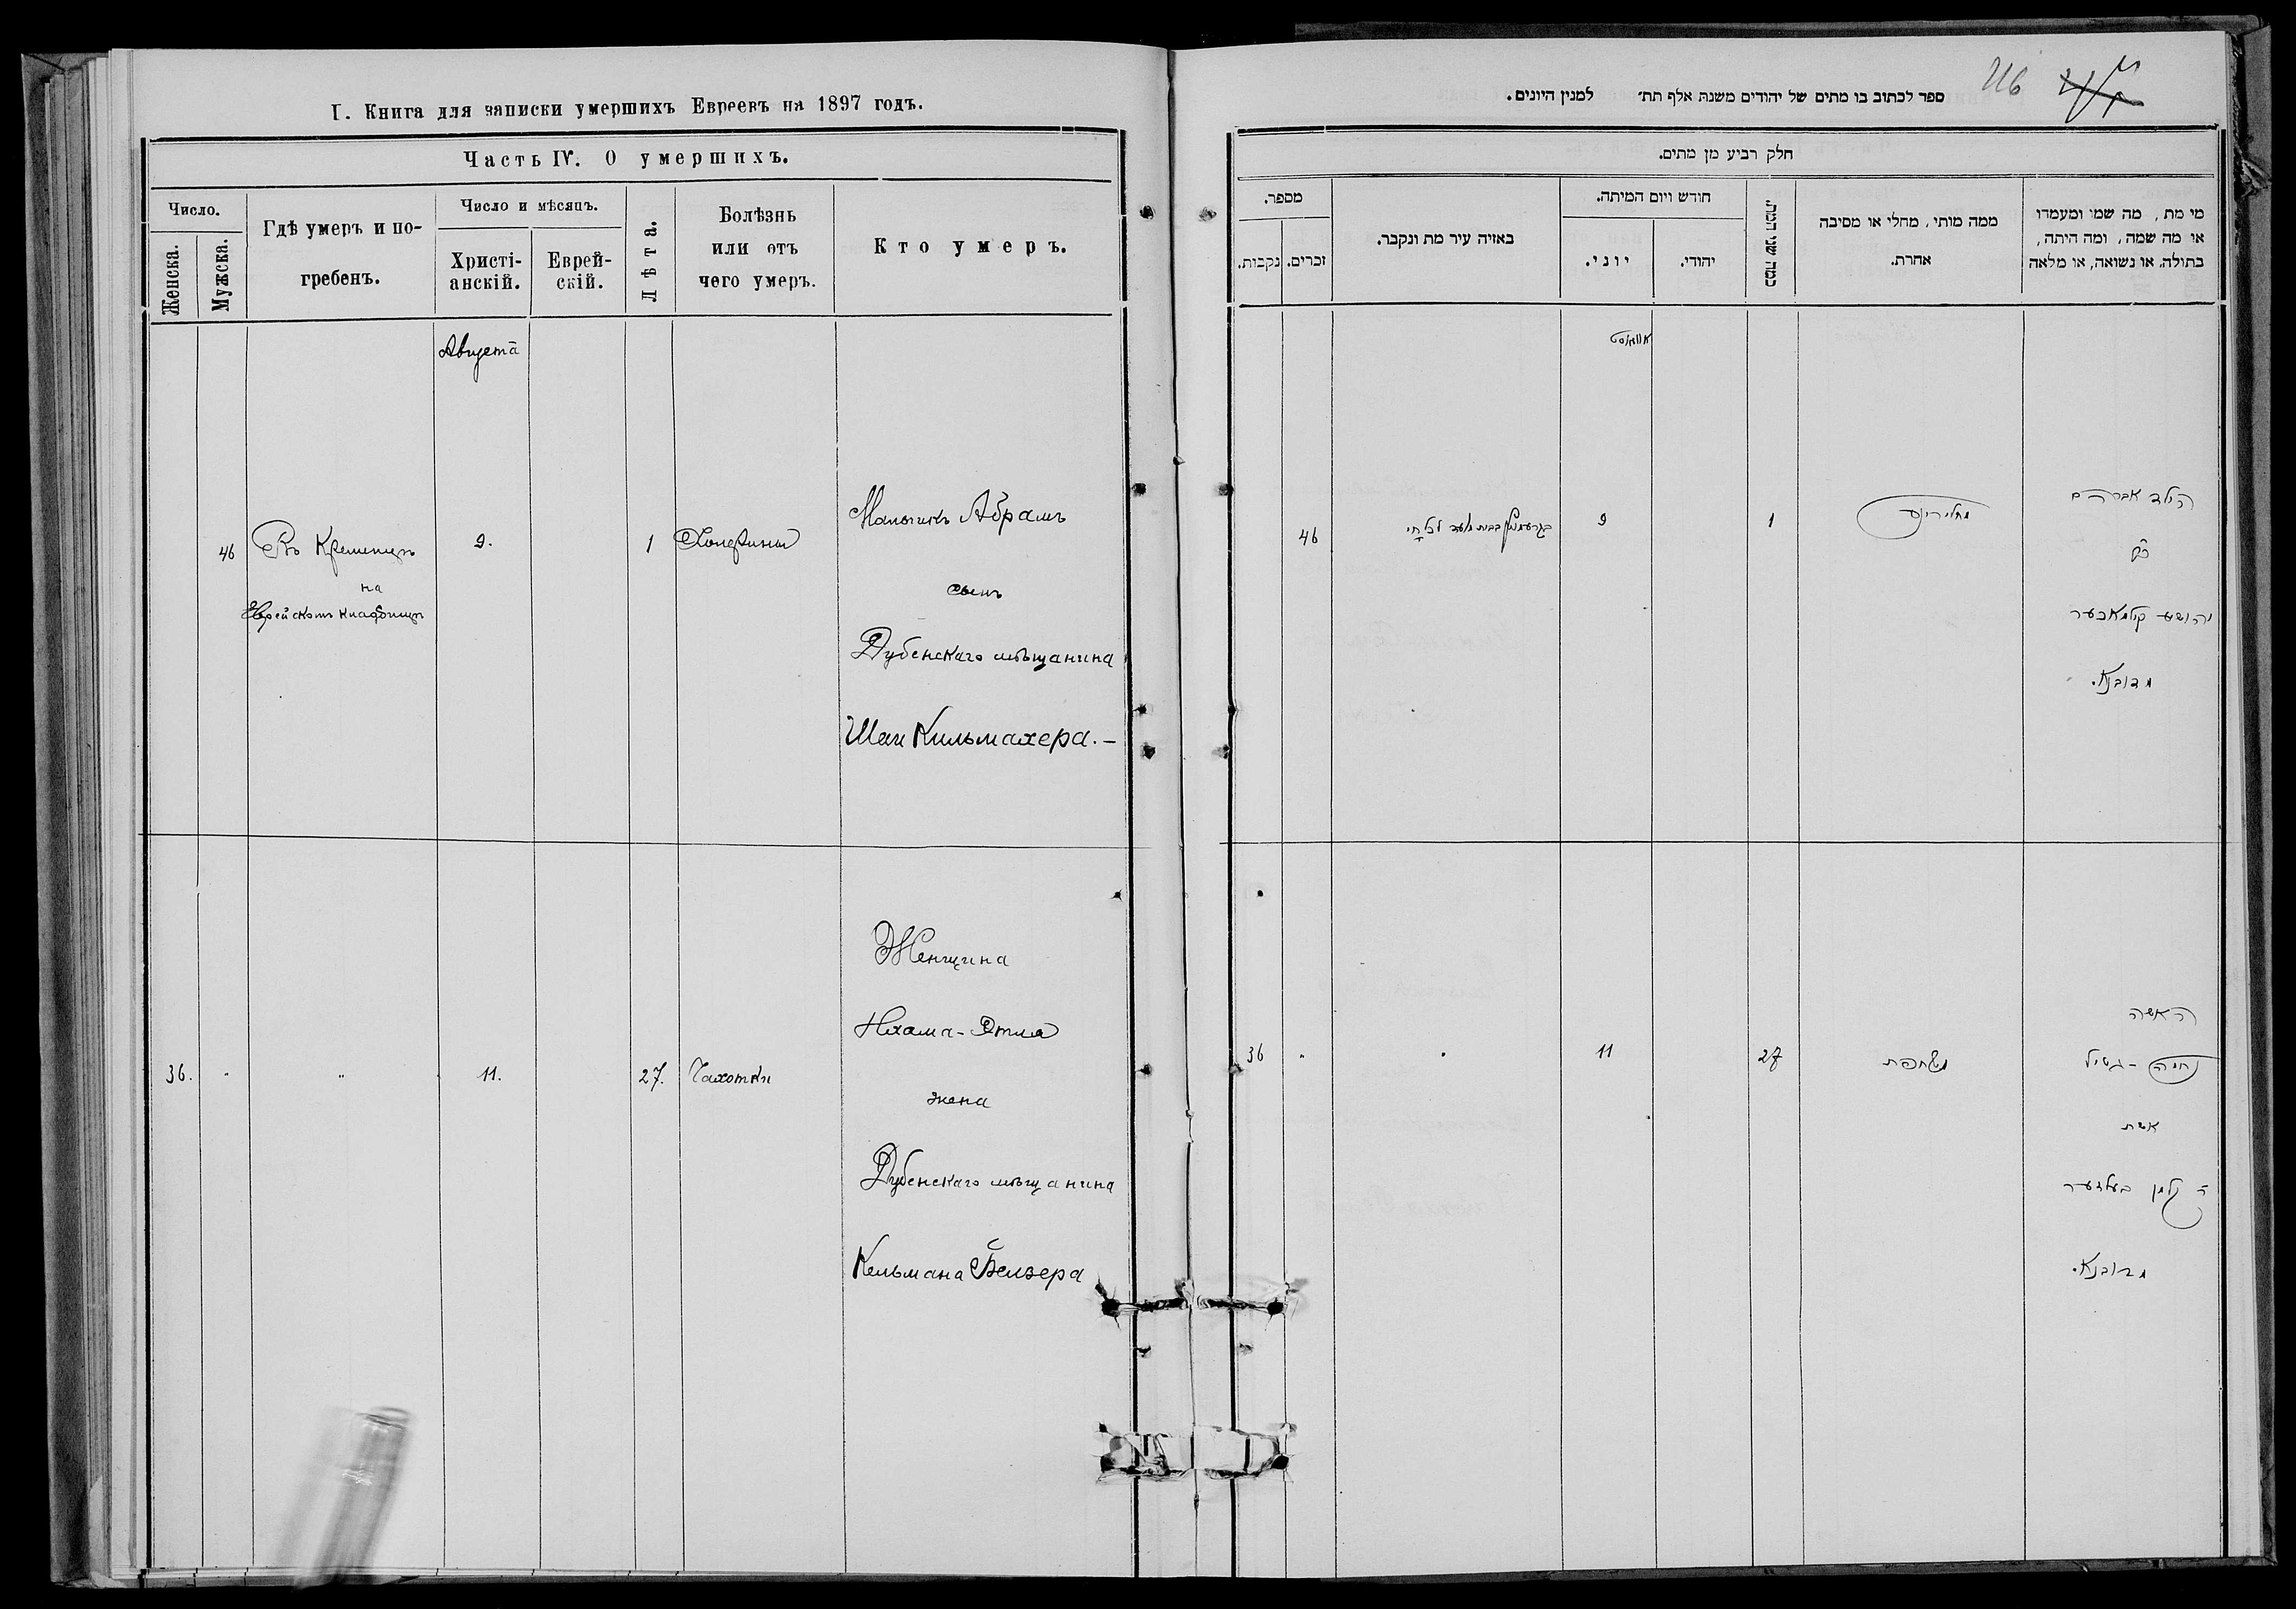 I. Книга для записки умершихъ Евреевъ на 1897 годъ.
Часть IV. О умершихъ.
Число.
Женска.
Мужска.
Гдѣ умеръ и по-
гребенъ.
Число и мѣсяцъ.
Христі-
анскій.
Еврей-
скій.
Лѣта.
Болѣзнь
или отъ
чего умеръ.
Кто умеръ.
Августа
46
Въ Кременцѣ
на
Еврейскомъ кладбищѣ
9.
1
Холерины
Мальчикъ Абрамъ
сынъ
Дубенскаго мѣщанина
Шаи Кильмахера.-
36.
"
"
11.
27.
Чахотки
Женщина
Нхама-Этля
жена
Дубенскаго мѣщанина
Кельмана Белзера
216
ספר לכתוב בו מתים של יהודים משנת אלף תת׳ למנין היונים.
חלק רביע מן מתים.
מספר.
נקבות.
זכרים.
באזיה עיר מת ונקבר.
חודש ויום המיתה.
יוני.
יהודי.
כמה שני המת.
ממה מותי, מחלי או מסיבה
אחרת.
מי מת, מה שמו ומעמדו
או מה שמה, ומה היתה,
בתולה, או נשואה, או מלאה
אווגוסט
46
9
1
הילד אברהם
יהושע קילמאכער
מדובנא.
36
"
"
11
27
משחפת
האשה
נחמה
אשת
ר קלמן בעלזער
מדובנא.